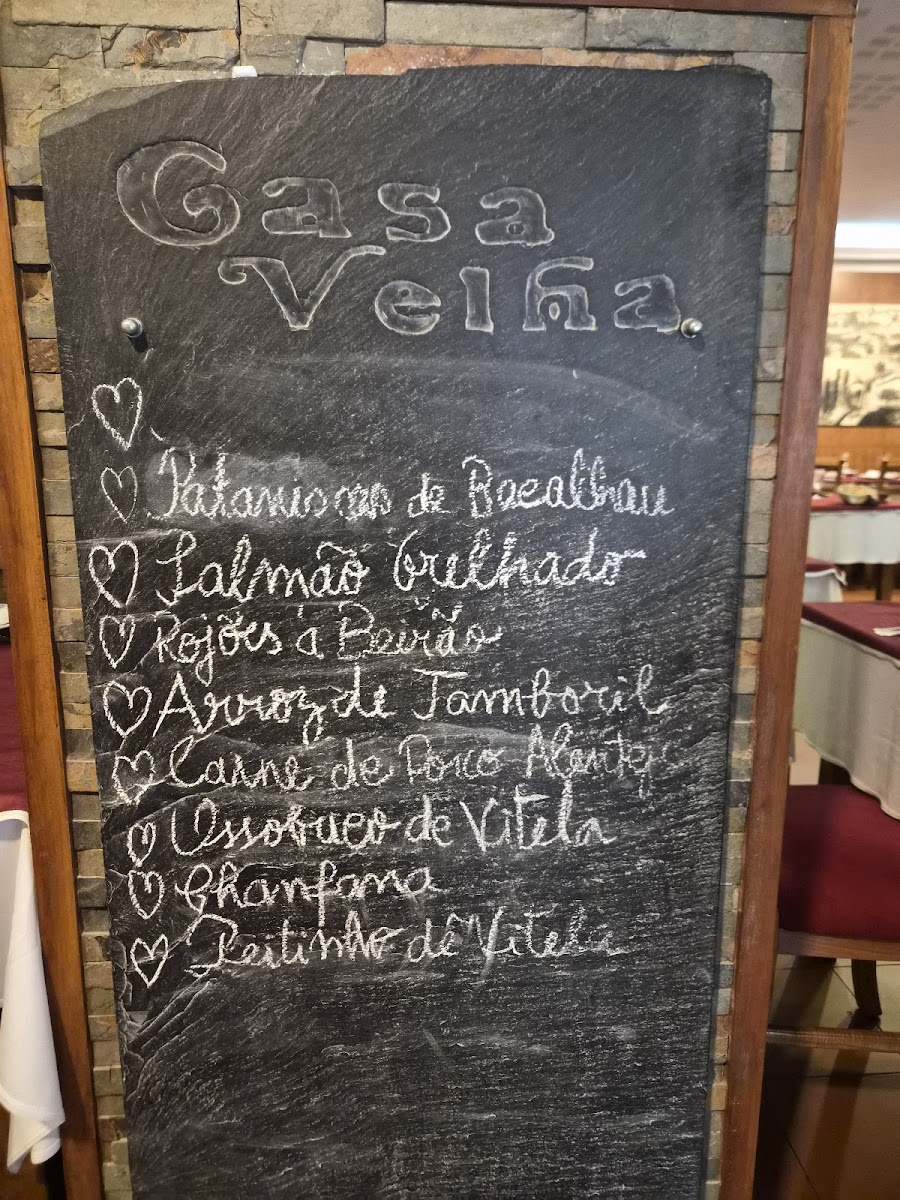 Casa
Velha
Pataniscas de Bacalhau
Salmão Grelhado
Rojões á Beirão
Arroz de Tamboril
Carne de Porco Alentejo
Ossobuco de Vitela
Chanfana
Peitinho de Vitela